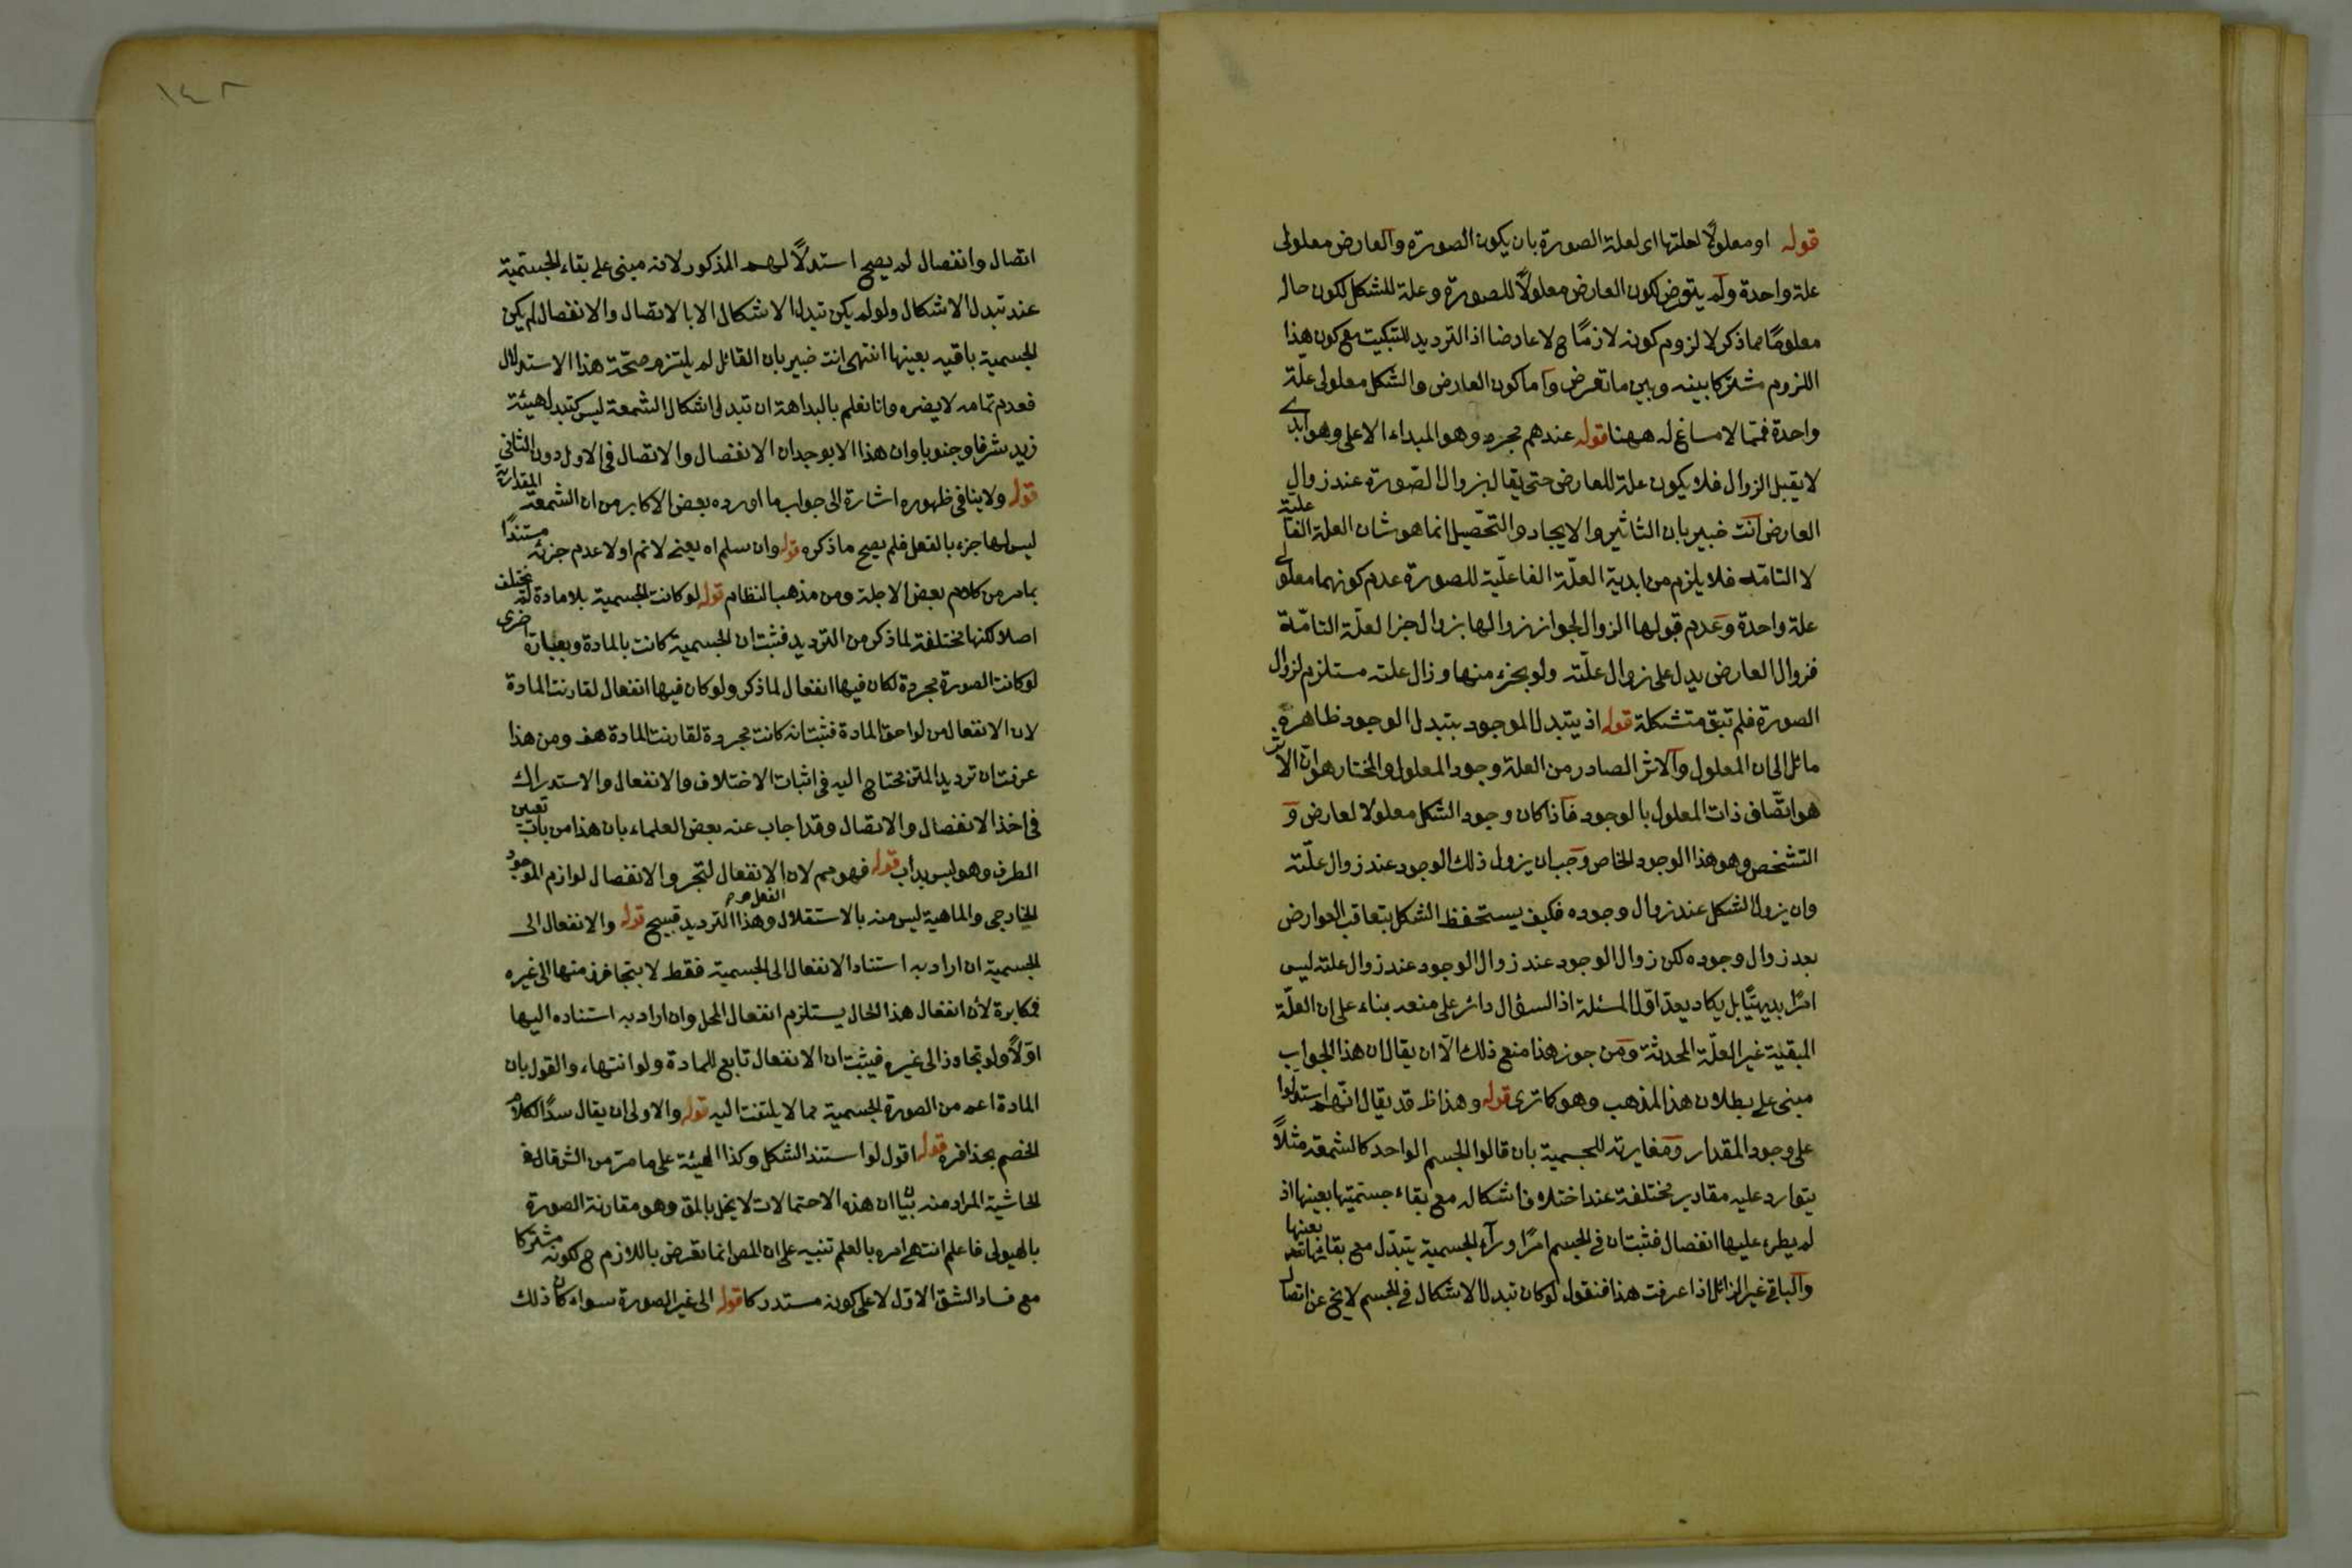 قوله او معلولًا لعلتها اى لعلة الصورة بان يكون الصورة والعارض معلولى
علة واحدة ولم يتعرض لكون العارض معلولًا للصورة وعلة للشكل لكون حاله
معلومًا مما ذكر لا لزوم كونه لازمًا ح لا عارضا اذ الترديد للتبكيت مع كون هذا
اللزوم مشتركا بينه وبين ما تعرض واما كون العارض والشكل معلولى علة
واحدة فمما لا مساغ له ههنا قوله عندهم مجرد وهو المبداء الاعلى وهو ابدى
لا يقبل الزوال فلا يكون علة للعارض حتى يقال بزوال الصورة عند زوال
العارض انت خبير بان التاثير والايجاد والتحصيل انما هو شان العلة الفاعلية
لا التامة فلا يلزم من ابدية العلّة الفاعلية للصورة عدم كونهما معلولى
علة واحدة وعدم قبولها الزوال لجواز زوالها بزوال جزء العلّة التامّة
فزوال العارض يدل على زوال علّته ولو بجزء منها وزال علته مستلزم لزوال
الصورة فلم تبق متشكلة قوله اذ يتبدل الموجود بتبدل الوجود ظاهره
مائل الى ان المعلول والاثر الصادر من العلة وجود المعلول والمختار هو ان الاثر
هو اتّصاف ذات المعلول بالوجود فاذا كان وجود الشكل معلولا لعارض و
التشخص وهو هذا الوجود الخاص وجب ان يزول ذلك الوجود عند زوال علّته
وان يزول الشكل عند زوال وجوده فكيف يستحفظ الشكل بتعاقب العوارض
بعد زوال وجوده لكن زوال الوجود عند زوال الوجود عند زوال علته ليس
امرًا بديهيًا بل يكاد يعدّ اوّل المسئلة اذ السؤال دائر على منعه بناء على ان العلّة
المبقية غير العلّة المحدثة ومن جوز هذا منع ذلك الّا ان يقال ان هذا الجواب
مبنى على بطلان هذا المذهب وهو كما ترى قوله وهذا ظ قد يقال انّهم استدلوا
على وجود المقدار ومغايرته للجسمية بان قالوا الجسم الواحد كالشمعة مثلًا
يتوارد عليه مقادير مختلفة عند اختلاف اشكاله مع بقاء جسميتها بعينها اذ
لم يطرء عليها انفصال فثبت ان فى الجسم امرًا وراء الجسمية يتبدّل مع بقائها بعينها
والباقى غير الزائل اذا عرفت هذا فنقول لو كان تبدل الاشكال فى الجسم لا يخ عن اتصال
١٤٢
اتصال وانفصال لم يصح استدلالهم المذكور لانه مبنى على بقاء الجسمية
عند تبدل الاشكال ولو لم يكن تبدل الاشكال الا بالاتصال والانفصال لم يكن
الجسمية باقيه بعينها انتهى انت خبير بان القائل لم يلتزم صحّة هذا الاستدلال
فعدم تمامه لا يضره وانا نعلم بالبداهة ان تبدل اشكال الشمعة ليس كتبدل هيئة
زيد شرقا وجنوبا وان هذا الا بوجدان الانفصال والاتصال فى الاول دون الثانى
قوله ولا ينافى ظهوره اشارة الى جواب ما اورده بعض الاكابر من ان الشمعة المقدارية
ليس لها جزء بالفعل فلم يصح ما ذكره قوله وان سلم اه يعنى لا نم اولا عدم جزئه مستندًا
بما مر من كلام بعض الاجلة ومن مذهب النظام قوله لو كانت الجسمية بلا مادة لم تختلف
اصلا لكنها مختلفة لما ذكر من الترديد فثبت ان الجسمية كانت بالمادة وبعبارة اخرى
لو كانت الصورة مجردة لكان فيها انفعال لما ذكر ولو كان فيها انفعال لقارنت المادة
لان الانفعال من لواحق المادة فثبت انه كانت مجردة لقارنت المادة هف ومن هذا
عرفت ان ترديد المتن محتاج اليه فى اثبات الاختلاف والانفعال والاستدراك
فى اخذ الانفصال والاتصال وقد اجاب عنه بعض العلماء بان هذا من باب تعيين
الطرف وهو ليس بدأب قوله فهو مم لان الانفعال لتجر والانفصال لوازم الموجود
الخارجى والماهية ليس منه بالاستقلال وهذا الترديد قبيح قوله والانفعال الى
الجسمية ان اراد به استناد الانفعال الى الجسمية فقط لا يتجاوز منها الى غيره
فمكابرة لأن انفعال هذا الحال يستلزم انفعال المحل وان اراد به استناده اليها
اوّلًا ولو تجاوز الى غيره فيثبت ان الانفعال تابع للمادة ولو انتهاء والقول بان
المادة اعم من الصورة الجسمية مما لا يلتفت اليه قوله والاولى ان يقال سدًا لكلام
الخصم بحذافره قوله اقول لو استند الشكل وكذا الهيئة على ما مرّ من الش قال فى
الحاشية المراد منه بيان ان هذه الاحتمالات لا يخل بالمق وهو مقارنة الصورة
بالهيولى فاعلم انتهى امره بالعلم تنبيه على ان المص انما تعرض باللازم ح لكونه مشتركا
مع فساد الشق الاوّل لا على كونه مستدركا قوله الى غير الصورة سواء كان ذلك